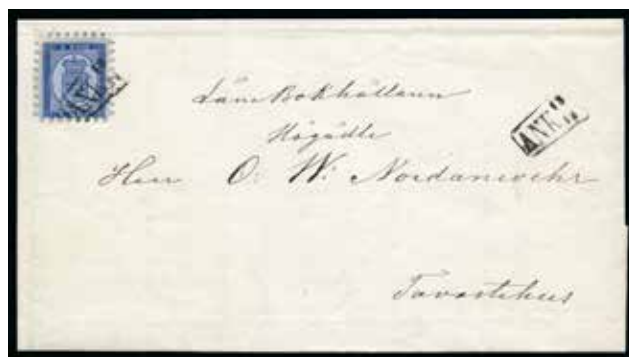 Läns Bokhållaren
Högädle
Herr O: W: Nordanswehr
Tavastehus
ANK
ANK